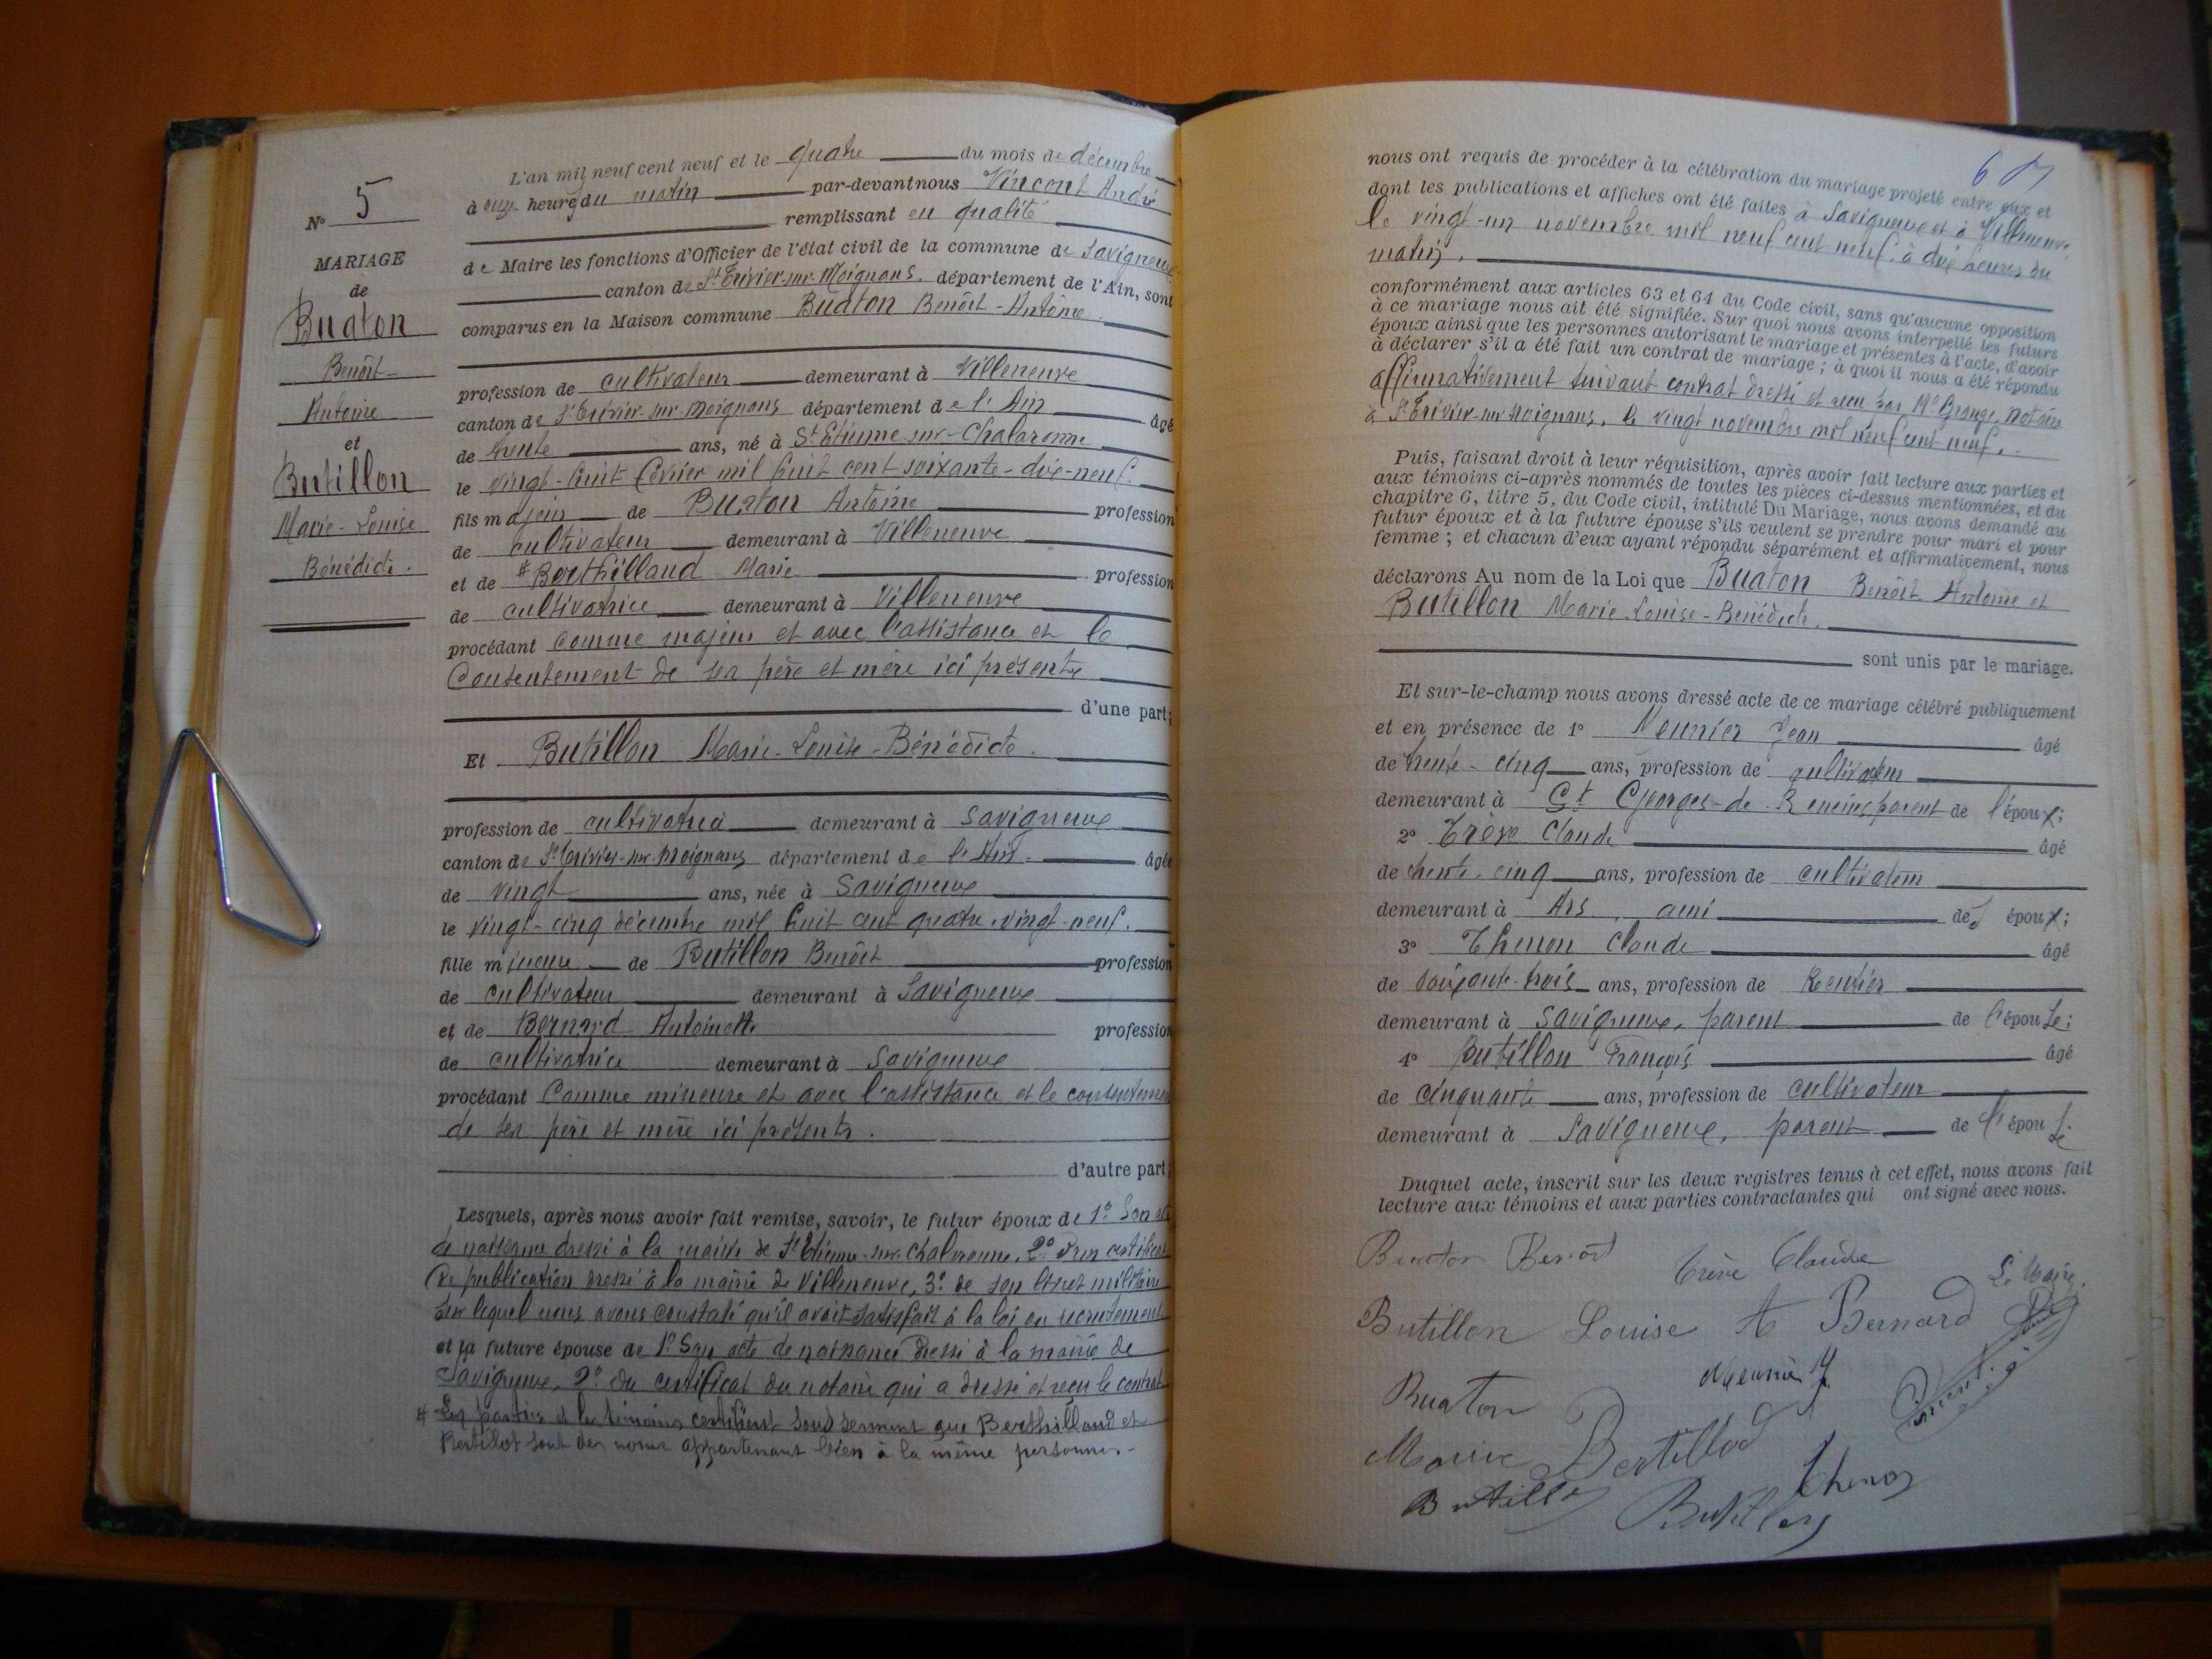 N° 5
MARIAGE
de
Buaton
Benoît-
Antoine
et
Butillon
Marie-Louise
Bénédicte.
L'an mil neuf cent neuf et le quatre du mois de décembre
à onze heures du matin par-devant nous Vincent André
remplissant en qualité
de Maire les fonctions d'Officier de l'état civil de la commune de Savigneux
canton de St Trivier-sur-Moignans, département de l'Ain, sont
comparus en la Maison commune Buaton Benoît-Antoine
profession de cultivateur demeurant à Villeneuve
canton de St Trivier-sur-Moignans département de l'Ain âgé
de trente ans, né à St Etienne-sur-Chalaronne
le vingt-huit février mil huit cent soixante-dix-neuf.
fils majeur de Buaton Antoine profession
de cultivateur demeurant à Villeneuve
et de # Berthilland Marie profession
de cultivatrice demeurant à Villeneuve
procédant comme majeur et avec l'assistance et le
Consentement de ses père et mère ici présents
d'une part;
Et Butillon Marie-Louise-Bénédicte.
profession de cultivatrice demeurant à Savigneux
canton de St Trivier-sur-Moignans département de l'Ain. âgée
de vingt ans, née à Savigneux
le vingt-cinq décembre mil huit cent quatre-vingt-neuf.
fille mineure de Butillon Benoît profession
de cultivateur demeurant à Savigneux
et de Bernard Antoinette profession
de cultivatrice demeurant à Savigneux
procédant Comme mineure et avec l'assistance et le consentement
de ses père et mère ici présents.
d'autre part;
Lesquels, après nous avoir fait remise, savoir, le futur époux de 1° Son acte
de naissance dressé à la mairie de St Etienne-sur-Chalaronne, 2° d'un certificat
de publication dressé à la mairie de Villeneuve, 3° de son livret militaire
sur lequel nous avons constaté qu'il avait satisfait à la loi du recrutement
et la future épouse de 1° Son acte de naissance dressé à la mairie de
Savigneux, 2° du certificat du notaire qui a dressé et reçu le contrat
# Les parties et les témoins certifient sous serment que Berthilland et
Bertillot sont des noms appartenant bien à la même personne.-
nous ont requis de procéder à la célébration du mariage projeté entre eux et
dont les publications et affiches ont été faites à Savigneux et à Villeneuve
le vingt-un novembre mil neuf cent neuf, à dix heures du
matin.
conformément aux articles 63 et 64 du Code civil, sans qu'aucune opposition
à ce mariage nous ait été signifiée. Sur quoi nous avons interpellé les futurs
époux ainsi que les personnes autorisant le mariage et présentes à l'acte, d'avoir
à déclarer s'il a été fait un contrat de mariage; à quoi il nous a été répondu
affirmativement suivant contrat dressé et reçu par Me Notaire
à St Trivier-sur-Moignans, le vingt novembre mil neuf cent neuf.
Puis, faisant droit à leur réquisition, après avoir fait lecture aux parties et
aux témoins ci-après nommés de toutes les pièces ci-dessus mentionnées, et du
chapitre 6, titre 5, du Code civil, intitulé Du Mariage, nous avons demandé au
futur époux et à la future épouse s'ils veulent se prendre pour mari et pour
femme; et chacun d'eux ayant répondu séparément et affirmativement, nous
déclarons Au nom de la Loi que Buaton Benoît Antoine et
Butillon Marie-Louise-Bénédicte.
sont unis par le mariage.
Et sur-le-champ nous avons dressé acte de ce mariage célébré publiquement
et en présence de 1° Meunier Jean âgé
de trente-cinq ans, profession de cultivateur
demeurant à St Georges-de-Reneins, parent de l'époux;
2° Trève Claude âgé
de trente-cinq ans, profession de cultivateur
demeurant à Ars, ami de l'époux;
3° Thenon Claude âgé
de soixante-trois ans, profession de Rentier
demeurant à Savigneux, parent de l'épouse;
4° Butillon François âgé
de cinquante ans, profession de cultivateur
demeurant à Savigneux, parent de l'épouse.
Duquel acte, inscrit sur les deux registres tenus à cet effet, nous avons fait
lecture aux témoins et aux parties contractantes qui ont signé avec nous.
Buaton Benoît Trève Claude
Le Maire.
Butillon Louise A Bernard
Meunier J
Buaton
Marie Bertillod
Thenon
Butillon Butillon